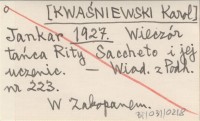 [KWAŚNIEWSKI Karol]
Jankar 1927. Wieczór
tańca Rity Saccheto i jej
uczenic. — Wiad. z Podh.
nr 223.
W Zakopanem.